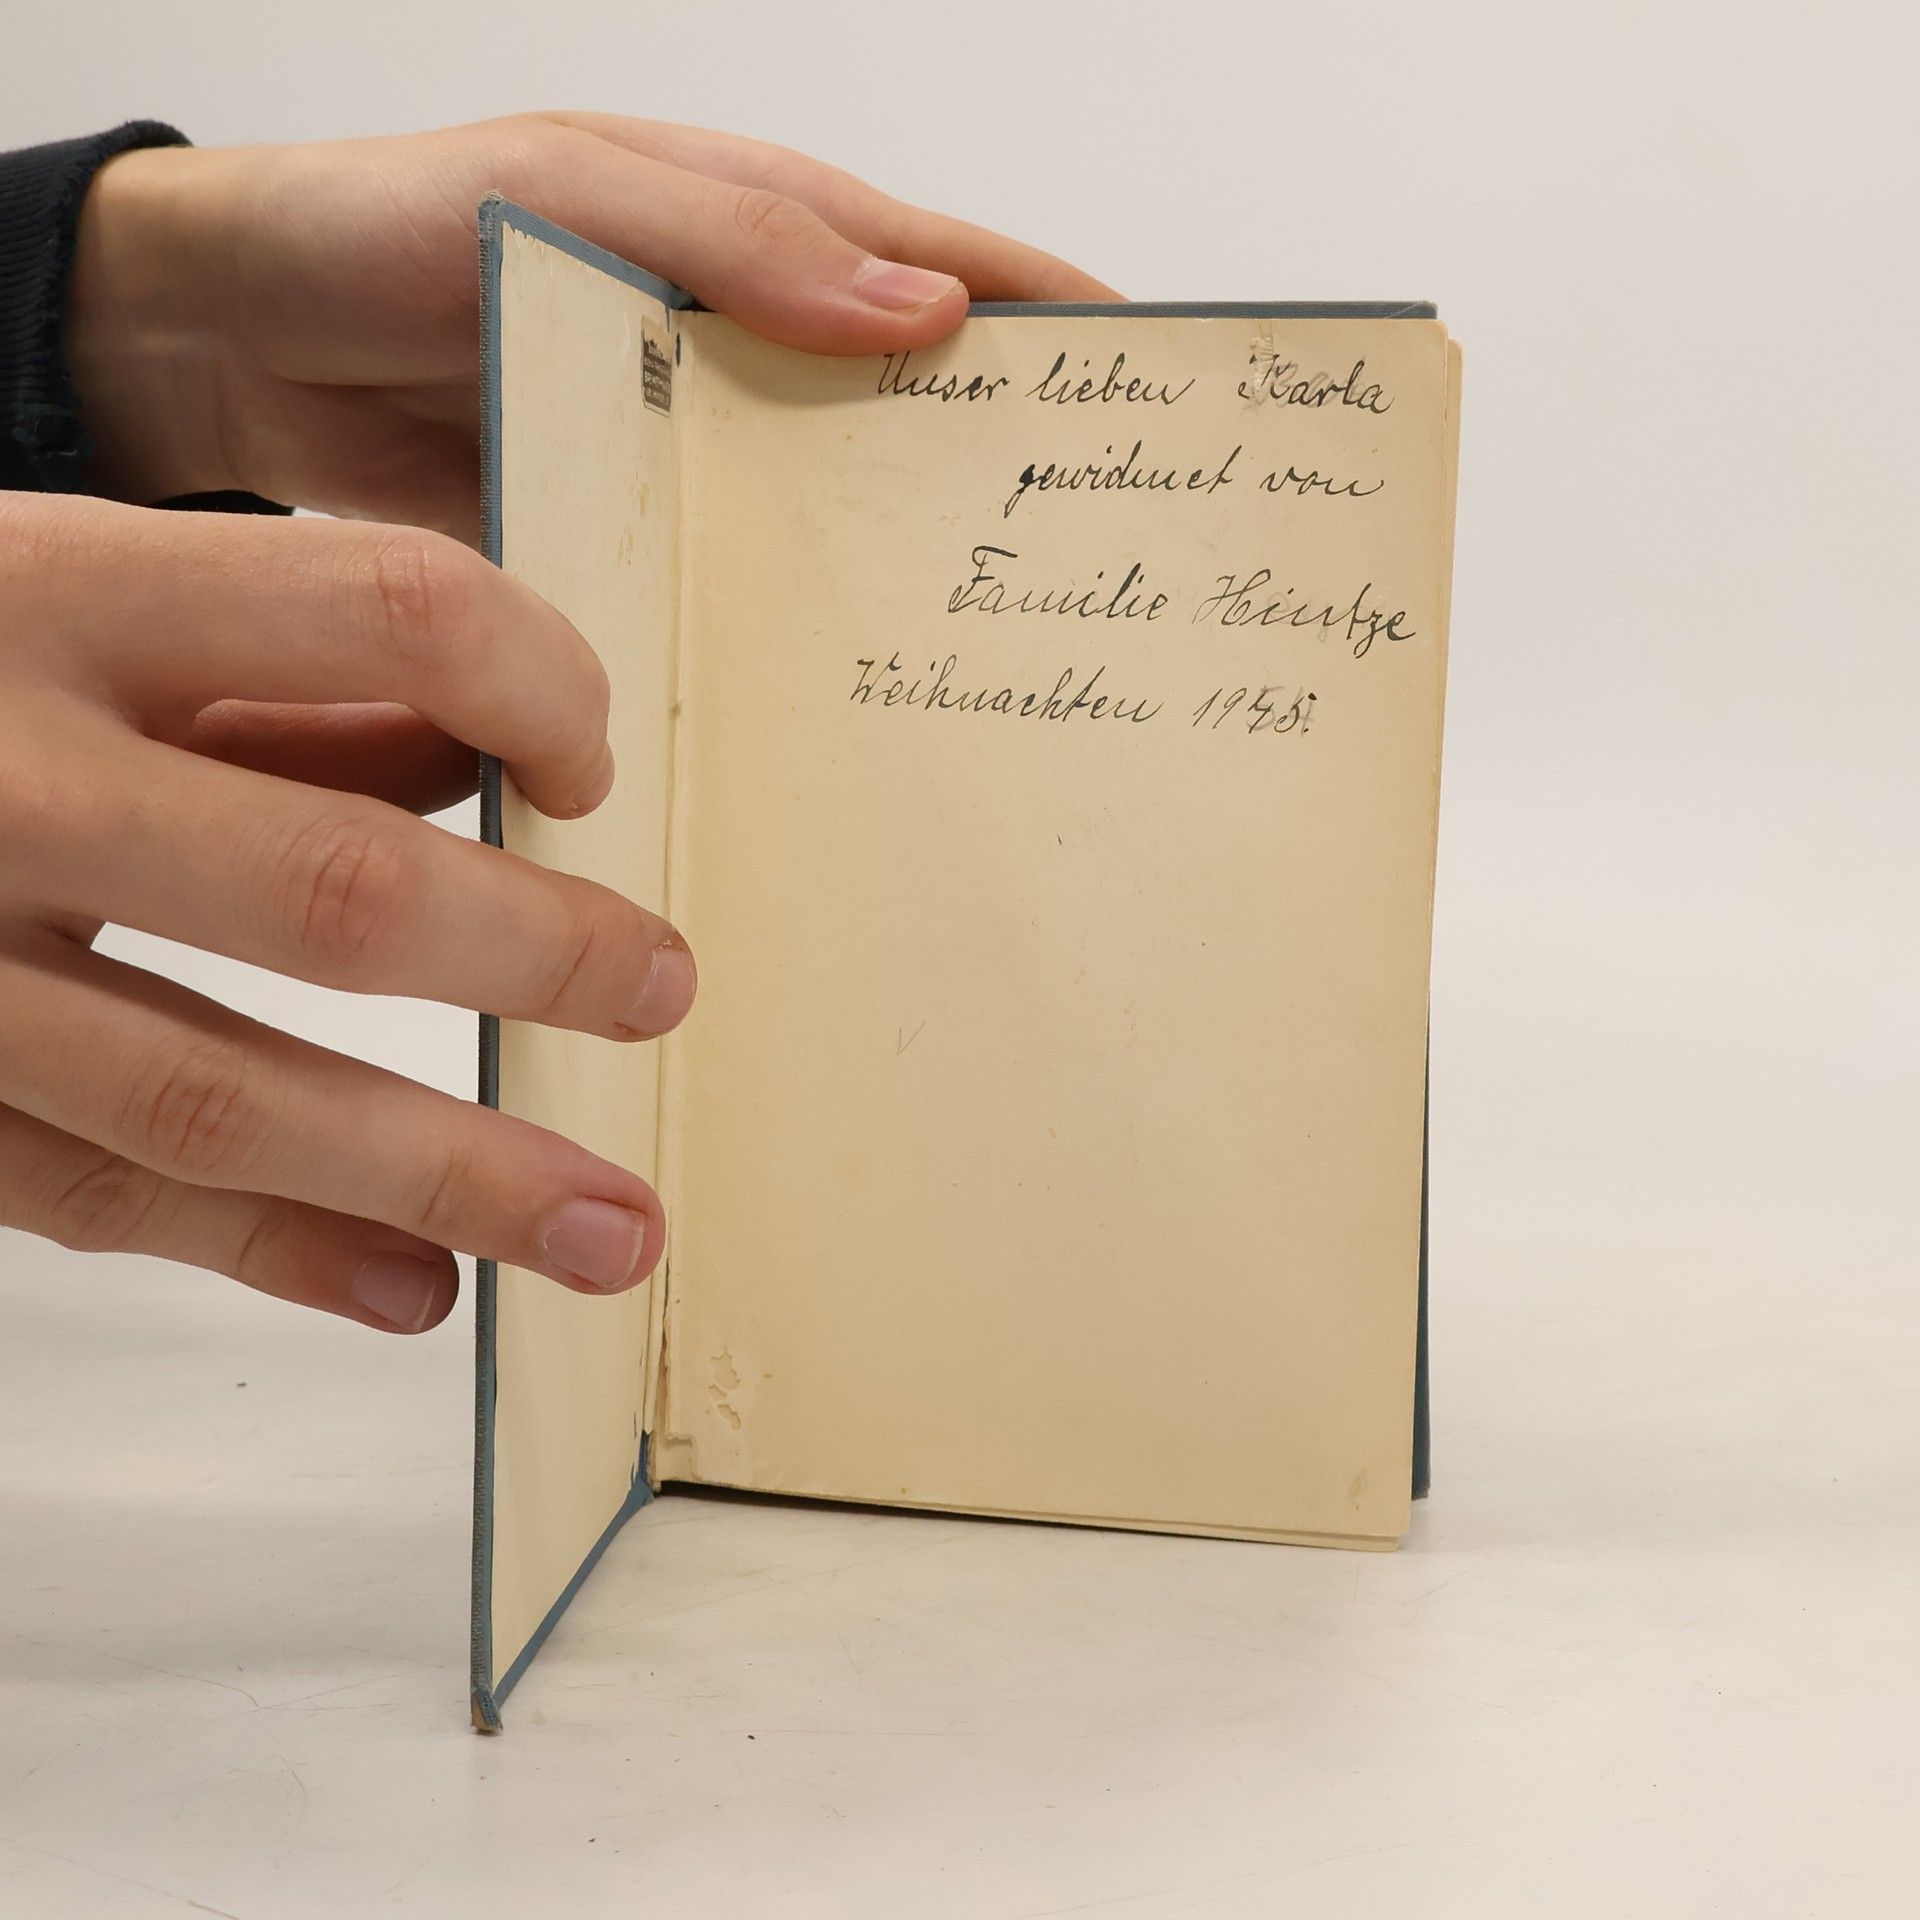 Unser lieben Karla
gewidmet von
Familie Hintze
Weihnachten 1945.